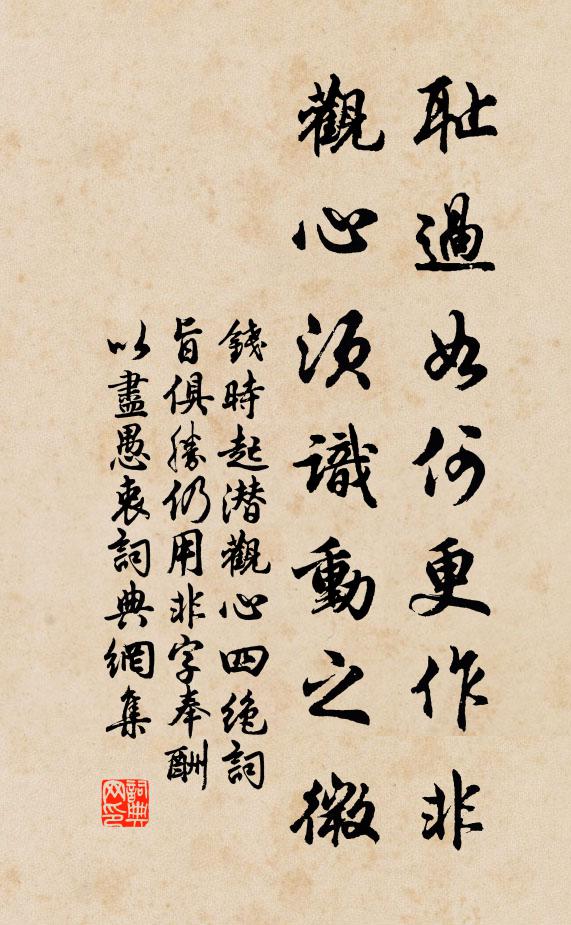 耻過如何更作非
觀心須識動之微
錢時起潜觀心四絶詞
旨俱勝仍用非字奉酬
以盡愚衷詞典網集
詞典
网印